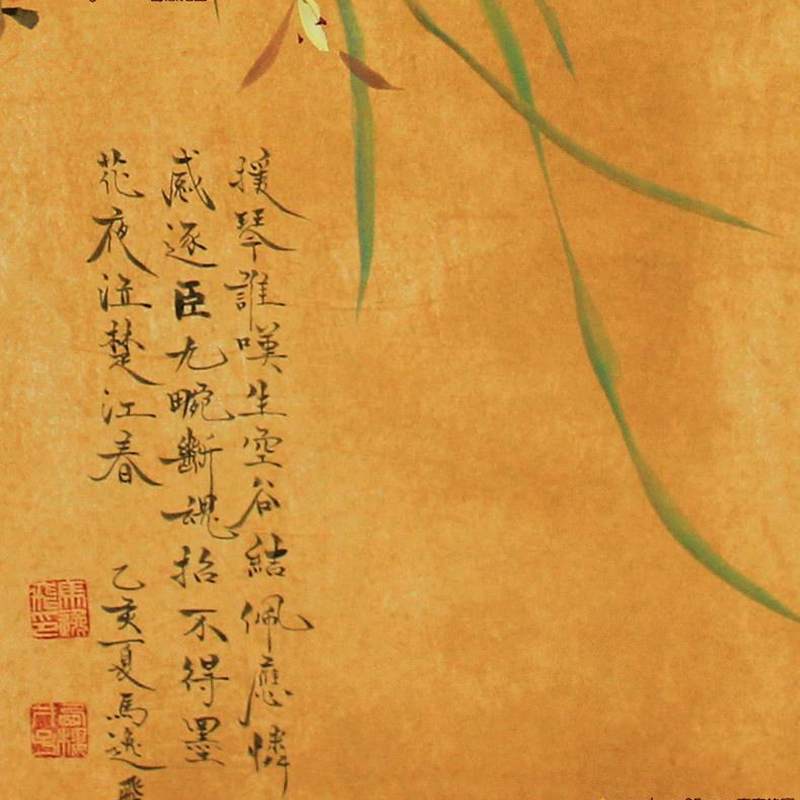 援琴誰嘆生空谷結佩應憐
感逐臣九畹斷魂招不得墨
花夜泣楚江春 乙亥夏馬逸